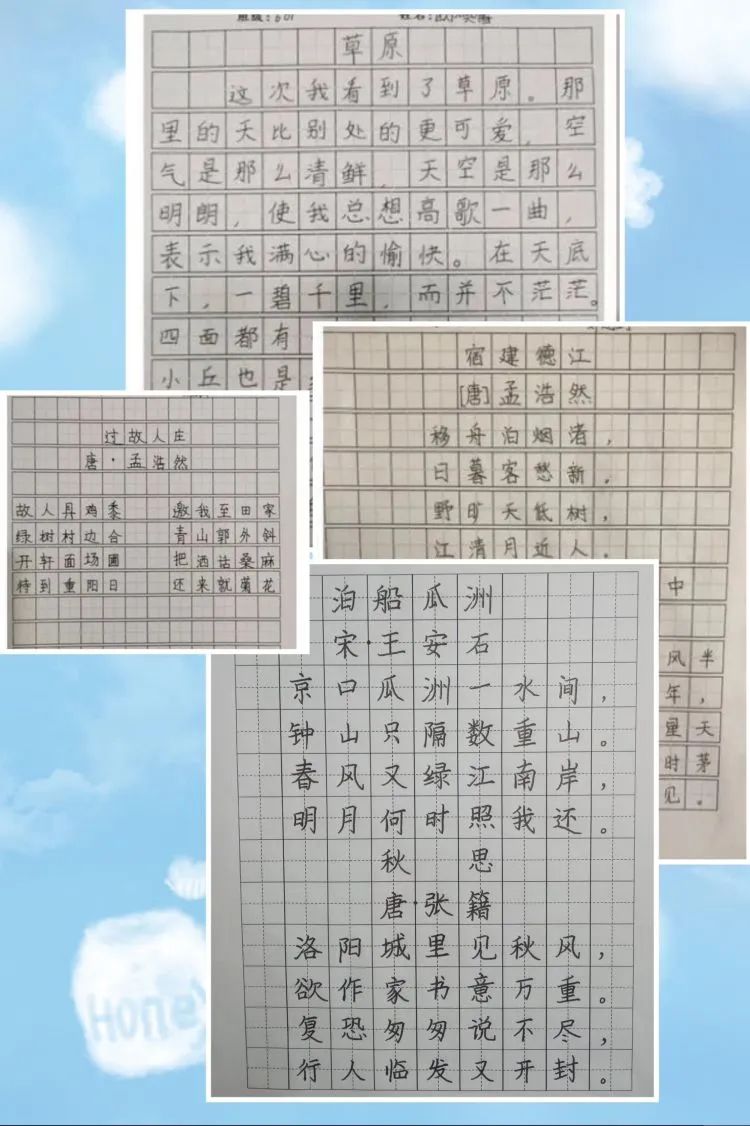 班级：601 姓名：
草原
这次我看到了草原。那
里的天比别处的更可爱，空
气是那么清鲜，天空是那么
明朗，使我总想高歌一曲，
表示我满心的愉快。在天底
下，一碧千里，而并不茫茫。
四面都有
小丘也是
宿建德江
[唐]孟浩然
移舟泊烟渚，
日暮客愁新。
野旷天低树，
江清月近人。
中
风半
年，
星天
时茅
见。
过故人庄
唐·孟浩然
故人具鸡黍 邀我至田家
绿树村边合 青山郭外斜
开轩面场圃 把酒话桑麻
待到重阳日 还来就菊花
泊船瓜洲
宋·王安石
京口瓜洲一水间，
钟山只隔数重山。
春风又绿江南岸，
明月何时照我还。
秋思
唐·张籍
洛阳城里见秋风，
欲作家书意万重。
复恐匆匆说不尽，
行人临发又开封。